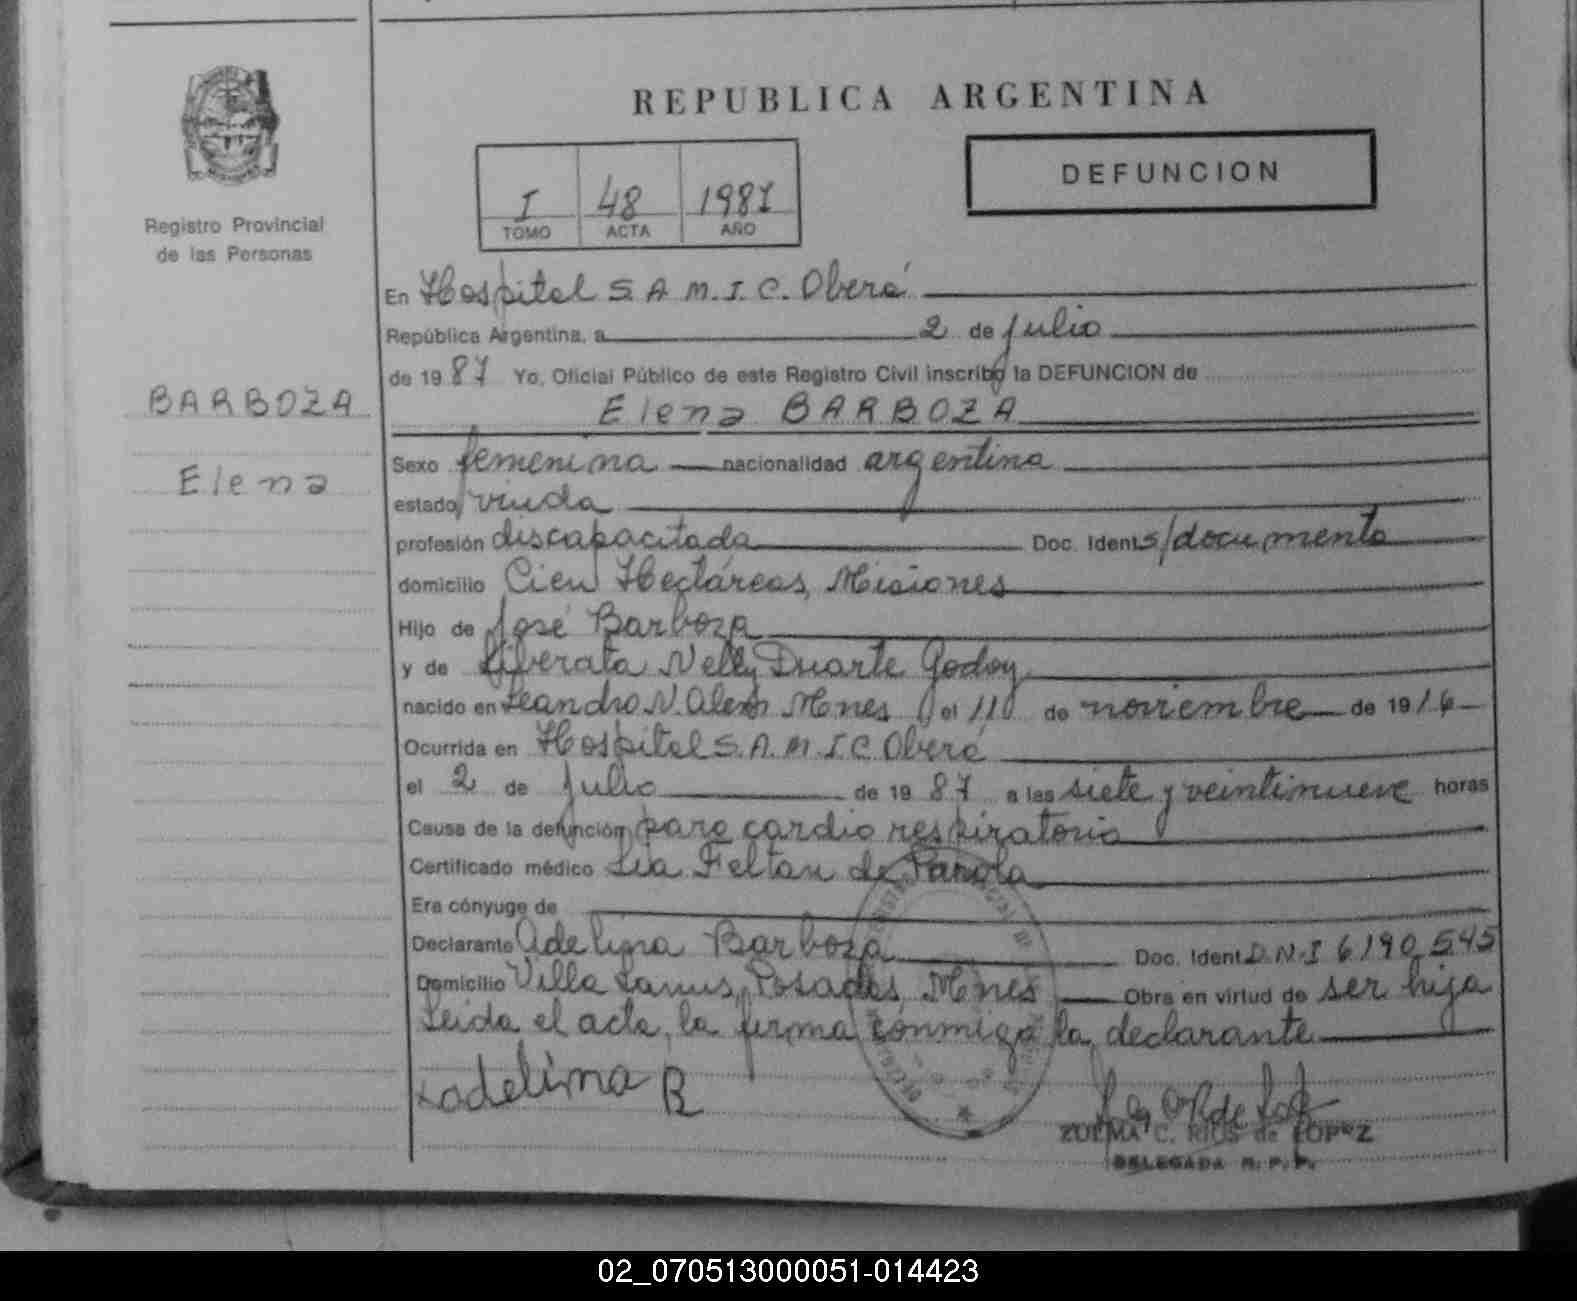 REPUBLICA ARGENTINA
DEFUNCION
I 48 1987
TOMO ACTA AÑO
Registro Provincial
de las Personas
BARBOZA
Elena
En Hospital S.A.M.I.C. Oberá
República Argentina, a 2 de julio
de 1987 Yo, Oficial Público de este Registro Civil inscribo la DEFUNCION de
Elena BARBOZA
Sexo femenina nacionalidad argentina
estado viuda
profesión discapacitada Doc. Ident s/documento
domicilio Cien Hectáreas, Misiones
Hijo de José Barboza
y de Liberata Nelly Duarte Godoy
nacido en Leandro N. Alem Mnes el 11 de noviembre de 1916
Ocurrida en Hospital S.A.M.I.C. Oberá
el 2 de julio de 1987 a las siete y veintinueve horas
Causa de la defunción paro cardio respiratorio
Certificado médico Lia Feltan de
Era cónyuge de
Declarante Adelina Barboza Doc. Ident. D.N.I 6.190.545
Domicilio Villa Lanus, Posadas, Mnes Obra en virtud de ser hija
Leida el acta, la firma conmigo la declarante
adelima B
ZULMA C. RIOS de LOPEZ
DELEGADA R. P. P.
02_070513000051-014423